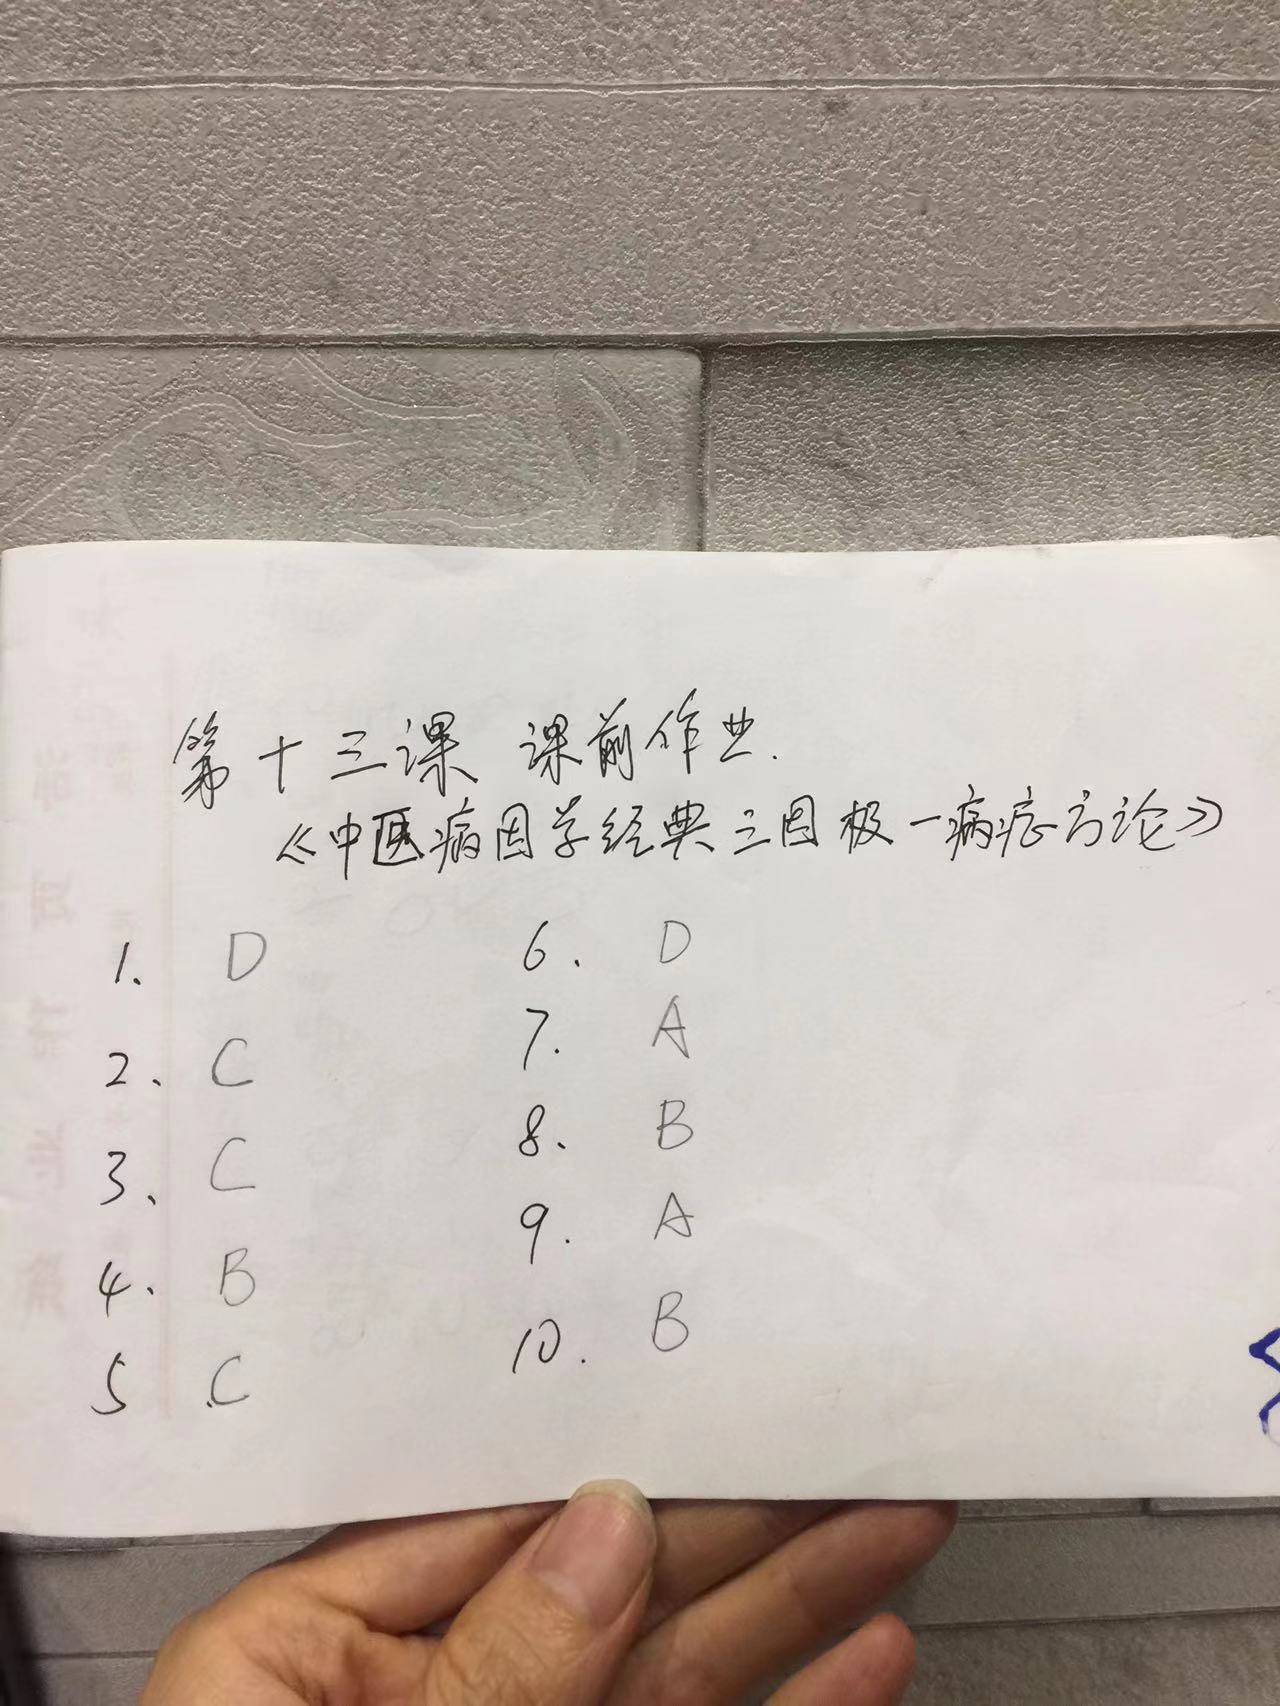 第十三课 课前作业.
《中医病因学经典三因极一病症方论》
1、 D
2、 C
3、 C
4、 B
5 C
6. D
7. A
8、 B
9. A
10. B